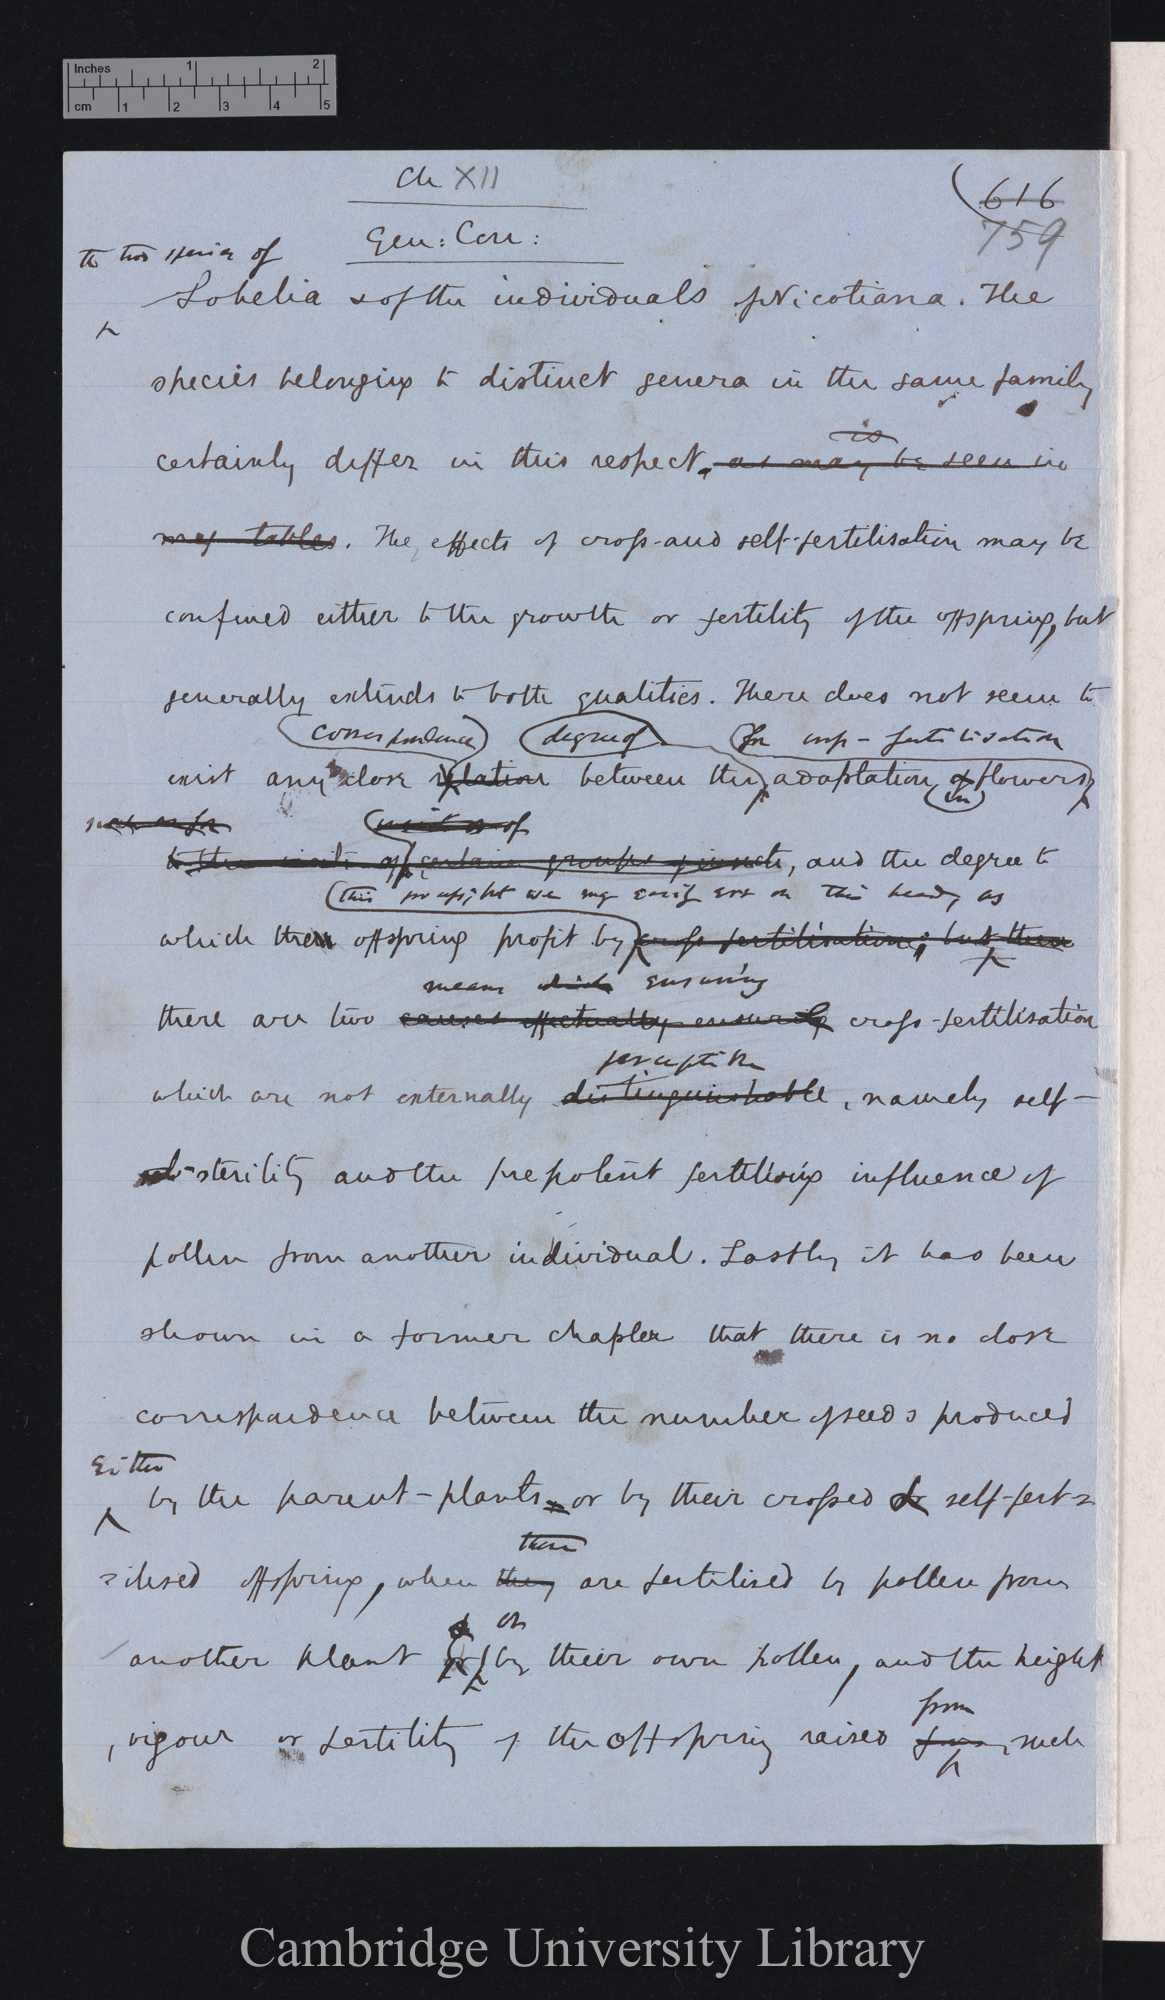 Inches 1 2
cm 1 2 3 4 5
Ch XII
616
759
Gen: Con:
the two species of
Lobelia & of the individuals of Nicotiana. The
species belonging to distinct genera in the same family
is
certainly differ in this respect. as may be seen in
my tables. The effects of cross- and self-fertilisation may be
confined either to the growth or fertility of the offspring, but
generally extends to both qualities. There does not seem to
correspondence degree of for cross-fertilisation
exist any close relation between the adaptation of flowers
in
visits of
to the visits of certain groups of insects, and the degree to
this process; but we may easily err on this head, as
which their offspring profit by cross fertilisation; but there
means which ensuring
there are two causes effectually ensuring cross-fertilisation
perceptible
which are not externally distinguishable, namely self-
sterility and the prepotent fertilising influence of
pollen from another individual. Lastly it has been
shown in a former chapter that there is no close
correspondence between the number of seeds produced
Either
by the parent-plants or by their crossed & self-fert=
=ilised offspring, when they are fertilised by pollen from
these
or
another plant or by their own pollen, and the height
from
, vigour or fertility of the offspring raised from such
Cambridge University Library